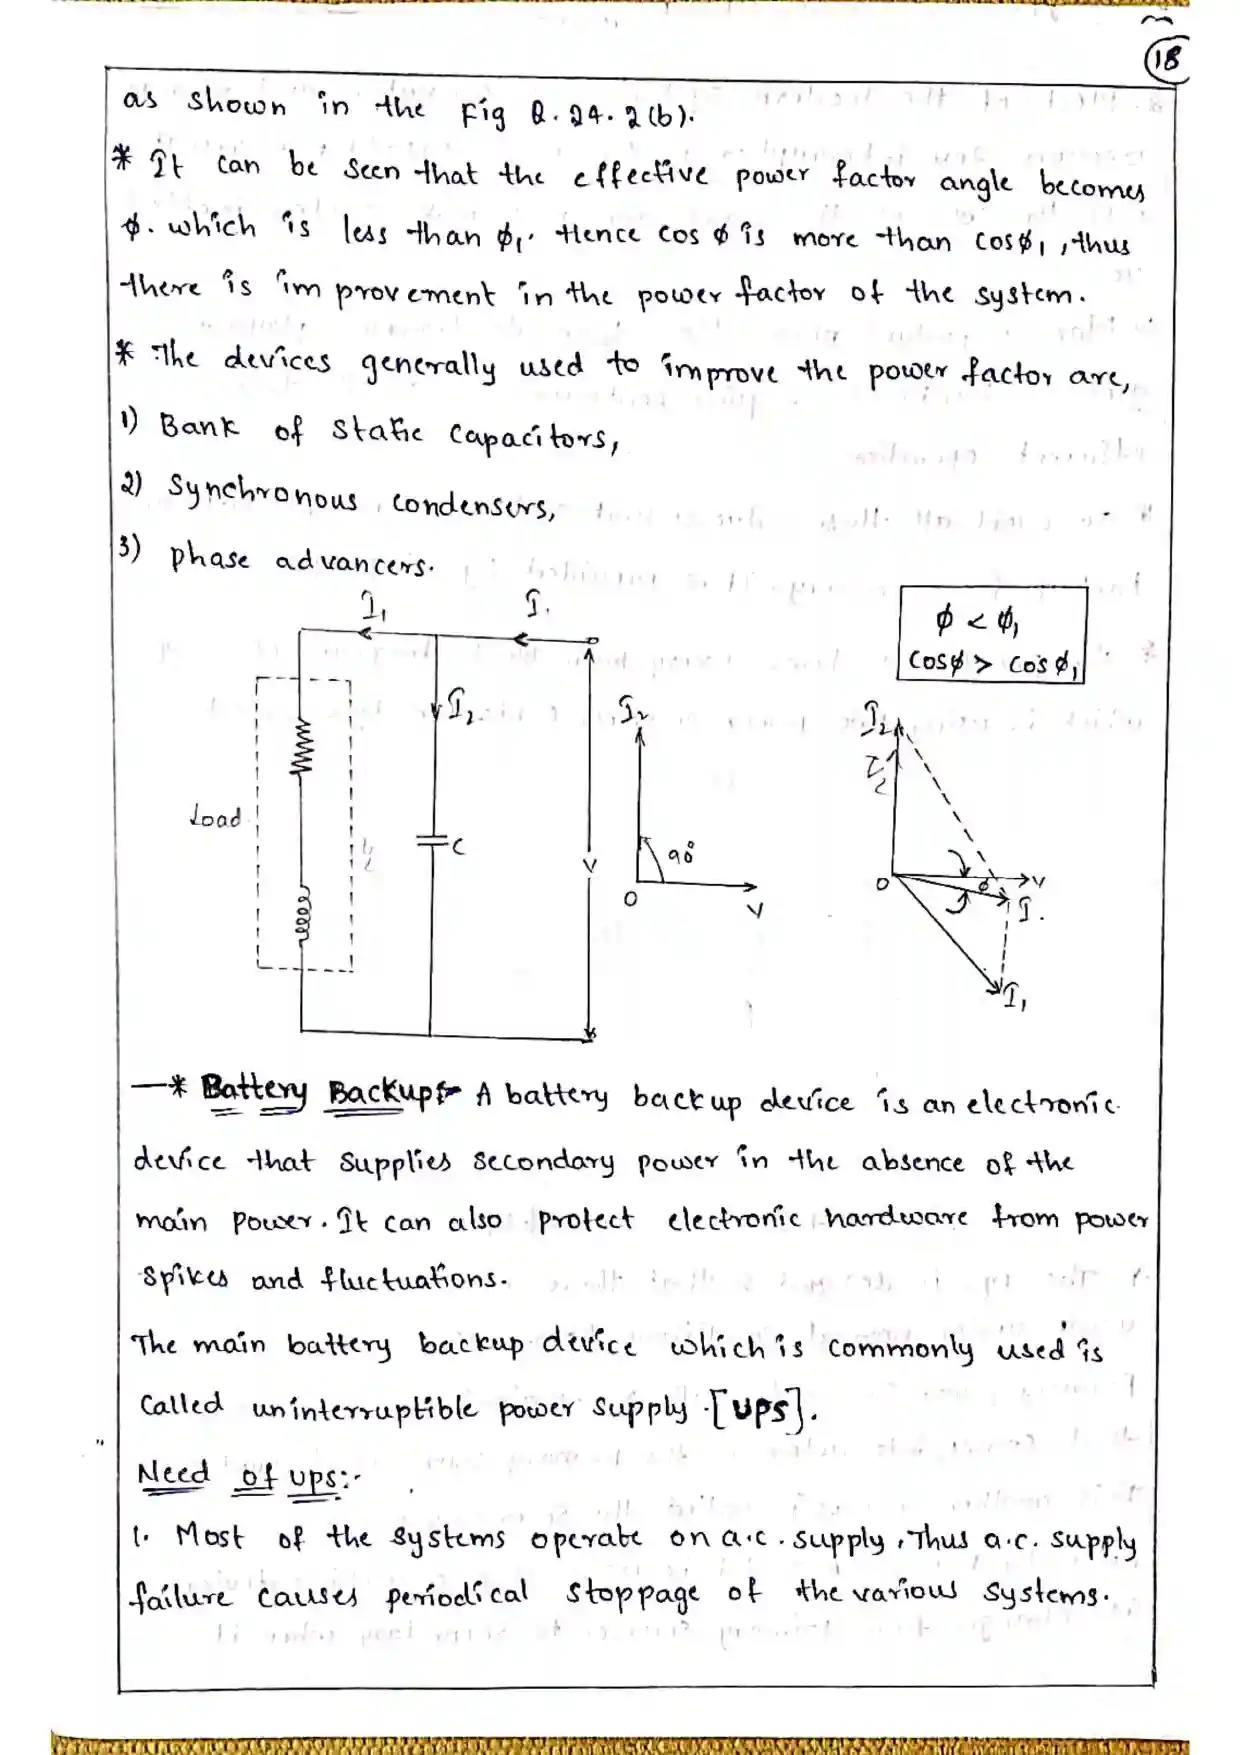 18
as shown in the Fig Q.24.2(b).
* It can be seen that the effective power factor angle becomes
φ. which is less than φ1. Hence cos φ is more than cosφ1, thus
there is improvement in the power factor of the system.
* The devices generally used to improve the power factor are,
1) Bank of static capacitors,
2) Synchronous condensers,
3) phase advancers.
I1 I.
φ < φ1
cosφ > cosφ1
I2 I2 I2
Load
C 90°
V
O V
O φ V
I.
I1
—* Battery Backup:- A battery backup device is an electronic
device that supplies secondary power in the absence of the
main power. It can also protect electronic hardware from power
spikes and fluctuations.
The main battery backup device which is commonly used is
called uninterruptible power supply.[UPS].
Need of ups:-
1. Most of the systems operate on a.c. supply, Thus a.c. supply
failure causes periodical stoppage of the various systems.